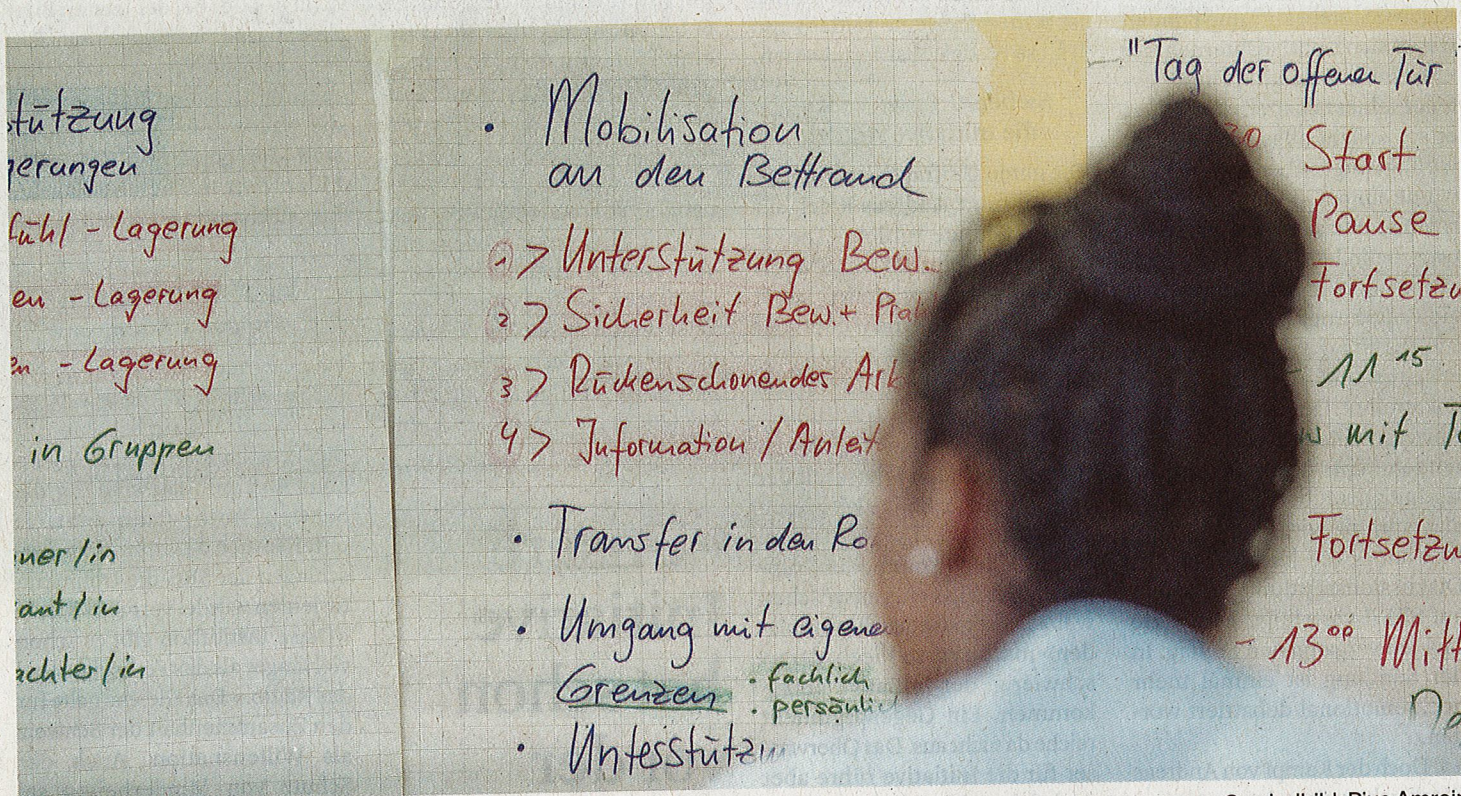 stützung
gerungen
fühl - Lagerung
en - Lagerung
en - Lagerung
in Gruppen
uer/in
ant/in
achter/in
• Mobilisation
an den Bettrand
1 > Unterstützung Bew.
2 > Sicherheit Bew. +
3 > Rückenschonendes Arb
4 > Information / Anleit
• Transfer in den Ro
• Umgang mit eigene
Grenzen • fachlich
• persönlic
• Untesstützu
"Tag der offenen Tür
30 Start
Pause
Fortsetzu
- 11 15
mit
Fortsetzu
- 13 00 Mitt